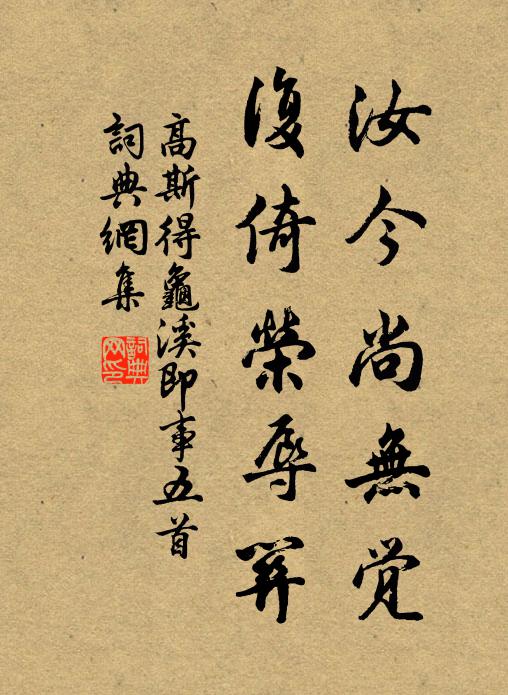 汝今尚無覚
復倚榮辱
高斯得龜溪即事五首
詞典網集
詞典网印